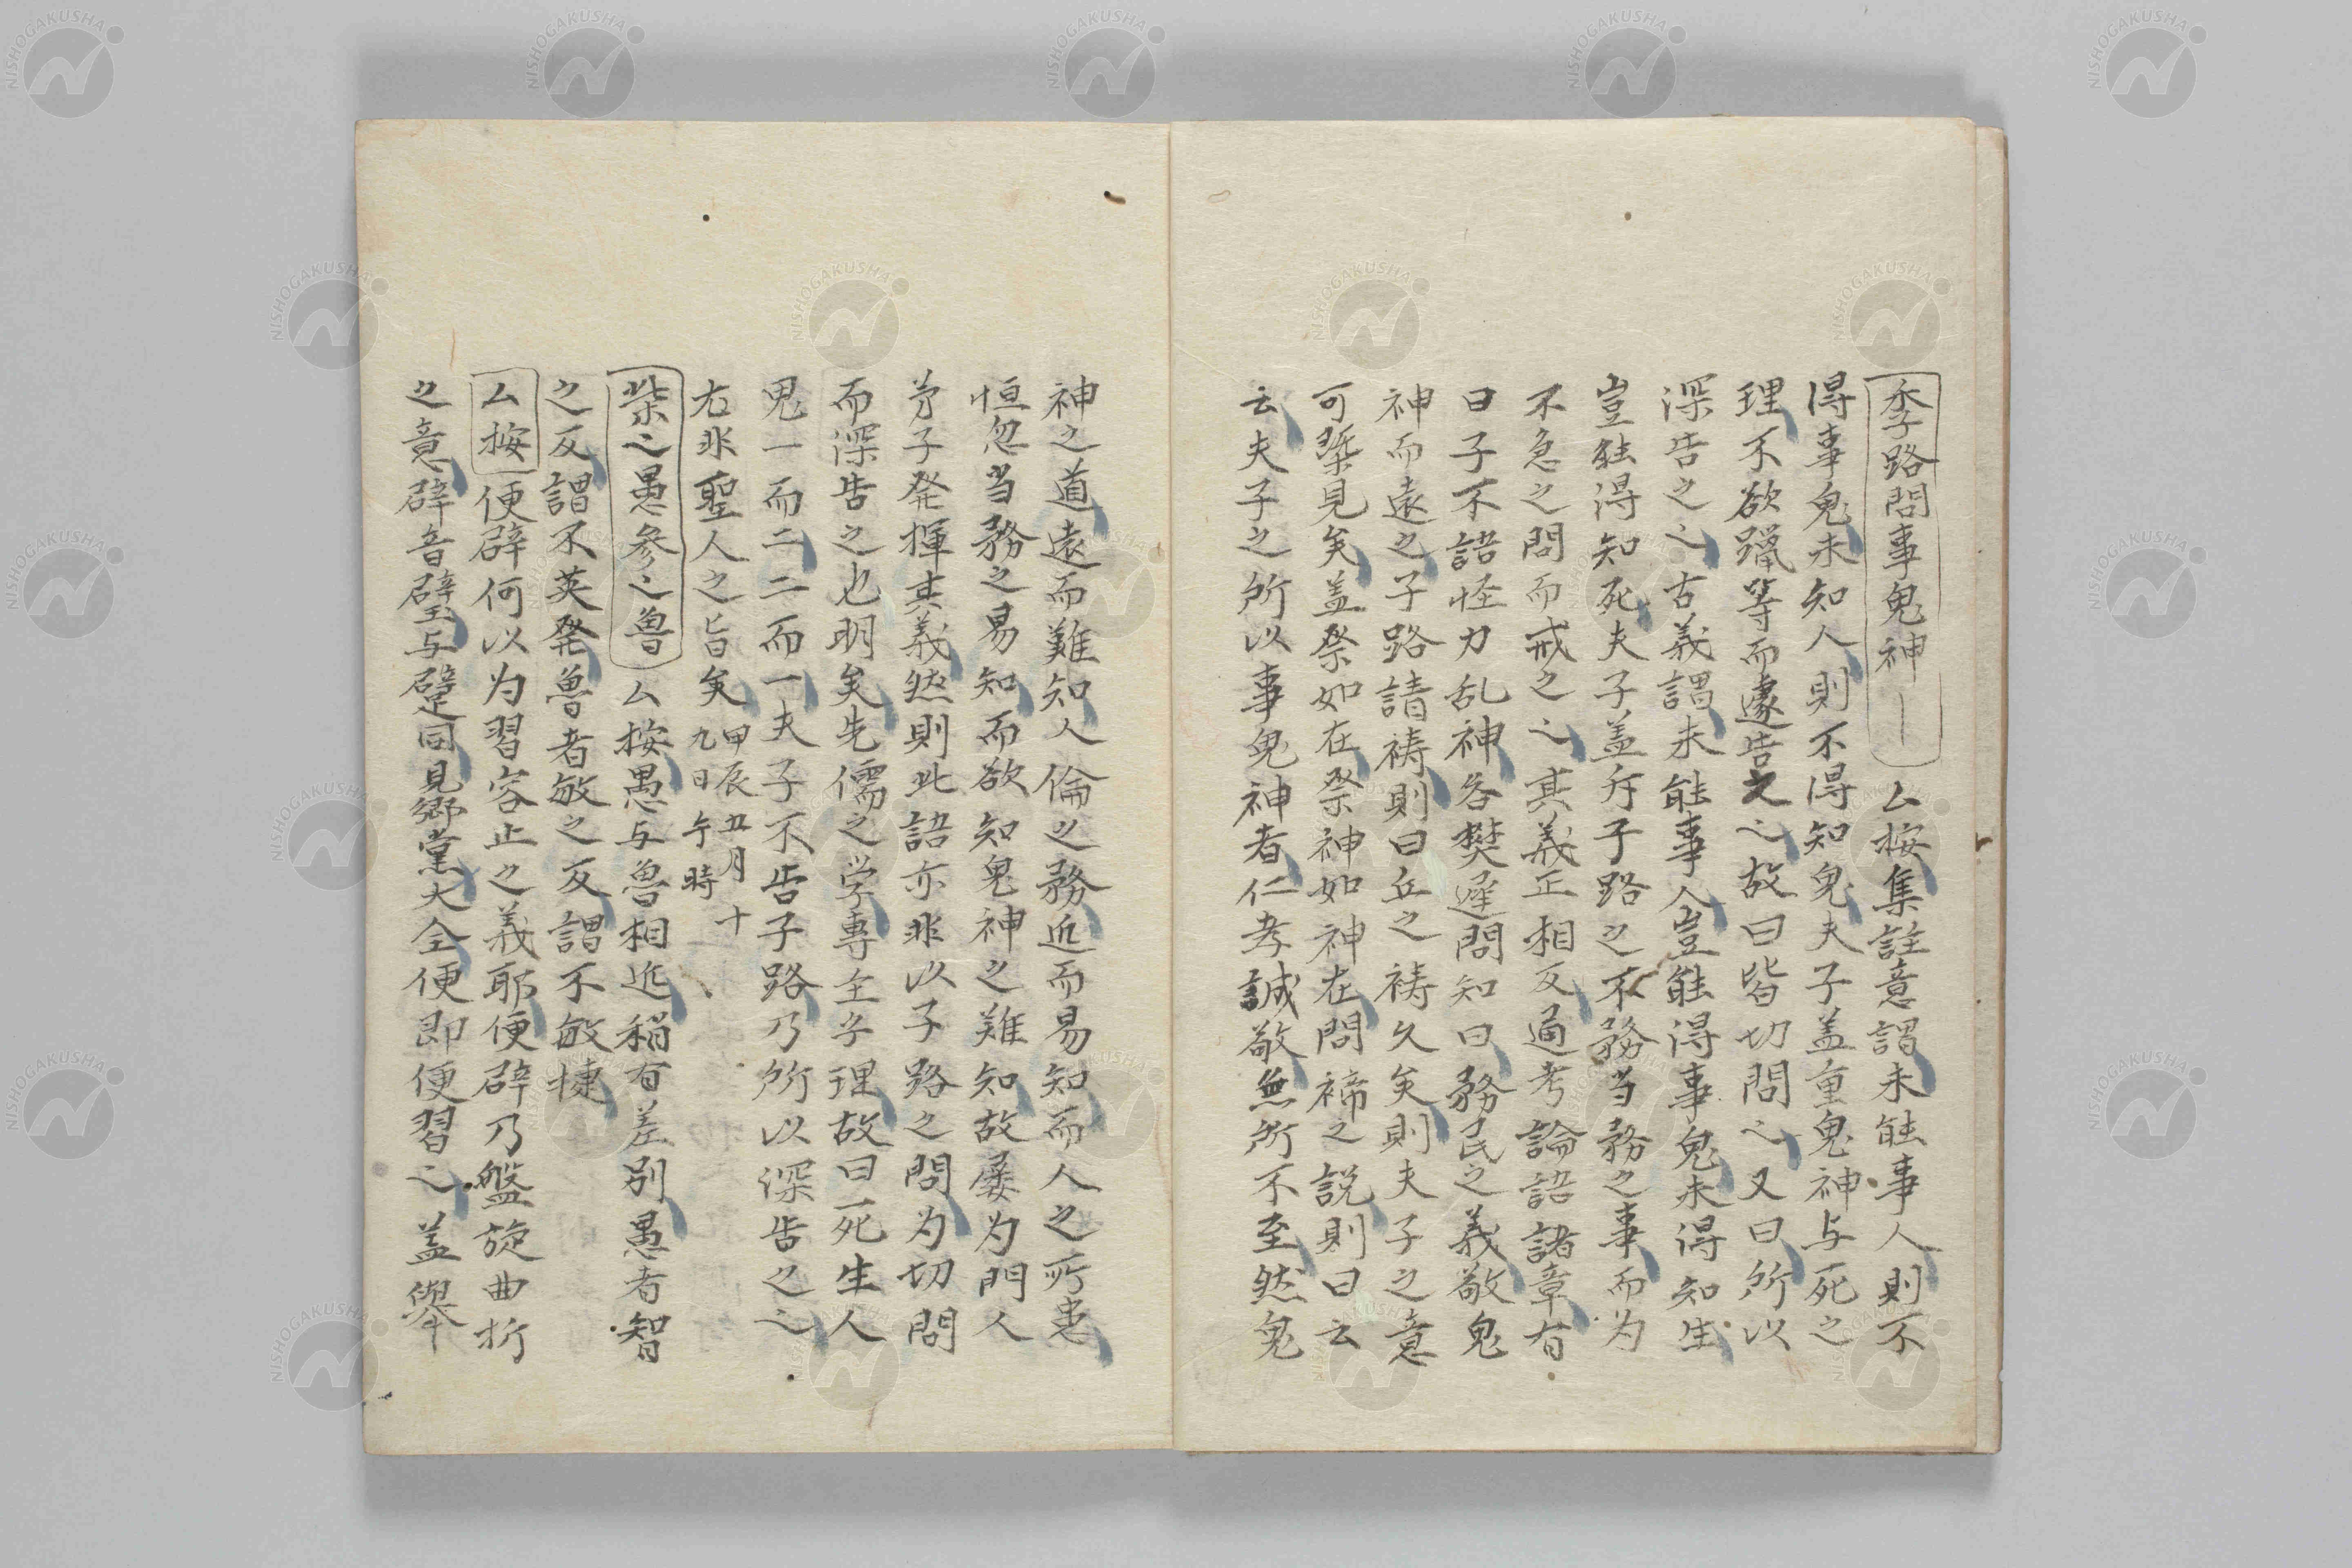 季路問事鬼神｜ 厶按集註意謂未能事人則不
得事鬼未知人則不得知鬼夫子盖重鬼神与死之
理不欲躐等而遽告之之故曰皆切問之又曰所以
深告之之古義謂未能事人豈能得事鬼未得知生
豈能得知死夫子盖斥子路之不務当務之事而为
不急之問而戒之之其義正相反通考論語諸章有
曰子不語怪力乱神答樊遲問知曰務民之義敬鬼
神而遠之子路請祷則曰丘之祷久矣則夫子之意
可槩見矣盖祭如在祭神如神在問禘之説則曰云
云夫子之所以事鬼神者仁孝誠敬無所不至然鬼
神之道遠而難知人倫之務近而易知而人之所患
恒忽当務之易知而欲知鬼神之難知故屡为門人
弟子発揮其義然則此語亦非以子路之問为切問
而深告之也明矣先儒之学專主乎理故曰死生人
鬼一而二二而一夫子不告子路乃所以深告之之
右非聖人之旨矣 甲辰五月十
九日午時
柴之愚参之魯 厶按愚与魯相近稍有差別愚者智
之反謂不英発魯者敏之反謂不敏捷
厶按 便辟何以为習容止之義耶便辟乃盤旋曲折
之意辟音璧与躄同見郷黨大全便即便習之盖舉